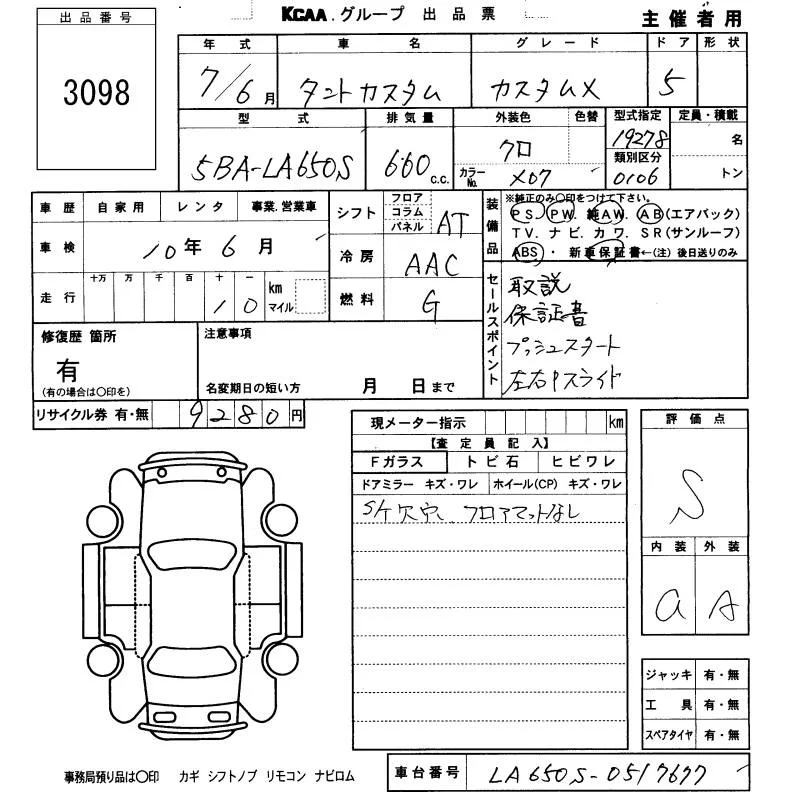 出品番号
3098
KCAA.グループ 出品票
主催者用
年式 車名 グレード ドア 形状
7/6月 タントカスタム カスタムX 5
型式 排気量 外装色 色替 型式指定 定員・積載
19278 名
類別区分
5BA-LA650S 660 c.c. クロ
カラーNo. X07 0106 トン
車歴 自家用 レンタ 事業.営業車
車検 10年6月
走行 十万 万 千 百 十 一
10 km マイル
シフト フロア コラム パネル AT
冷房 AAC
燃料 G
装備品
※純正のみ○印をつけて下さい。
PS. PW. 純AW. AB(エアバック)
TV. ナビ. カワ. SR(サンルーフ)
ABS・新車保証書←(注)後日送りのみ
セールスポイント
取説
保証書
プッシュスタート
左右Pスライド
修復歴 箇所
有
(有の場合は○印を)
注意事項
名変期日の短い方 月 日まで
リサイクル券 有・無 9280円
現メーター指示 km
【査定員記入】
Fガラス トビ石 ヒビワレ
ドアミラー キズ・ワレ ホイール(CP) キズ・ワレ
フロアマットなし
評価点
S
内装 外装
a A
ジャッキ 有・無
工具 有・無
スペアタイヤ 有・無
事務局預り品は○印 カギ シフトノブ リモコン ナビロム
車台番号 LA650S-0517677